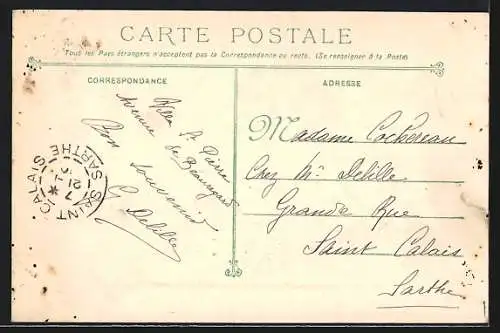 CARTE POSTALE
Tous les Pays étrangers n'acceptent pas la Correspondance au recto. (Se renseigner à la Poste)
CORRESPONDANCE
ADRESSE
Villa St Pierre
Avenue de Beauregard
Bon souvenir
G Delille
Madame Cochereau
Chez Mr Delille
Grande Rue
Saint Calais
Sarthe
SAINT CALAIS
SARTHE
7
21